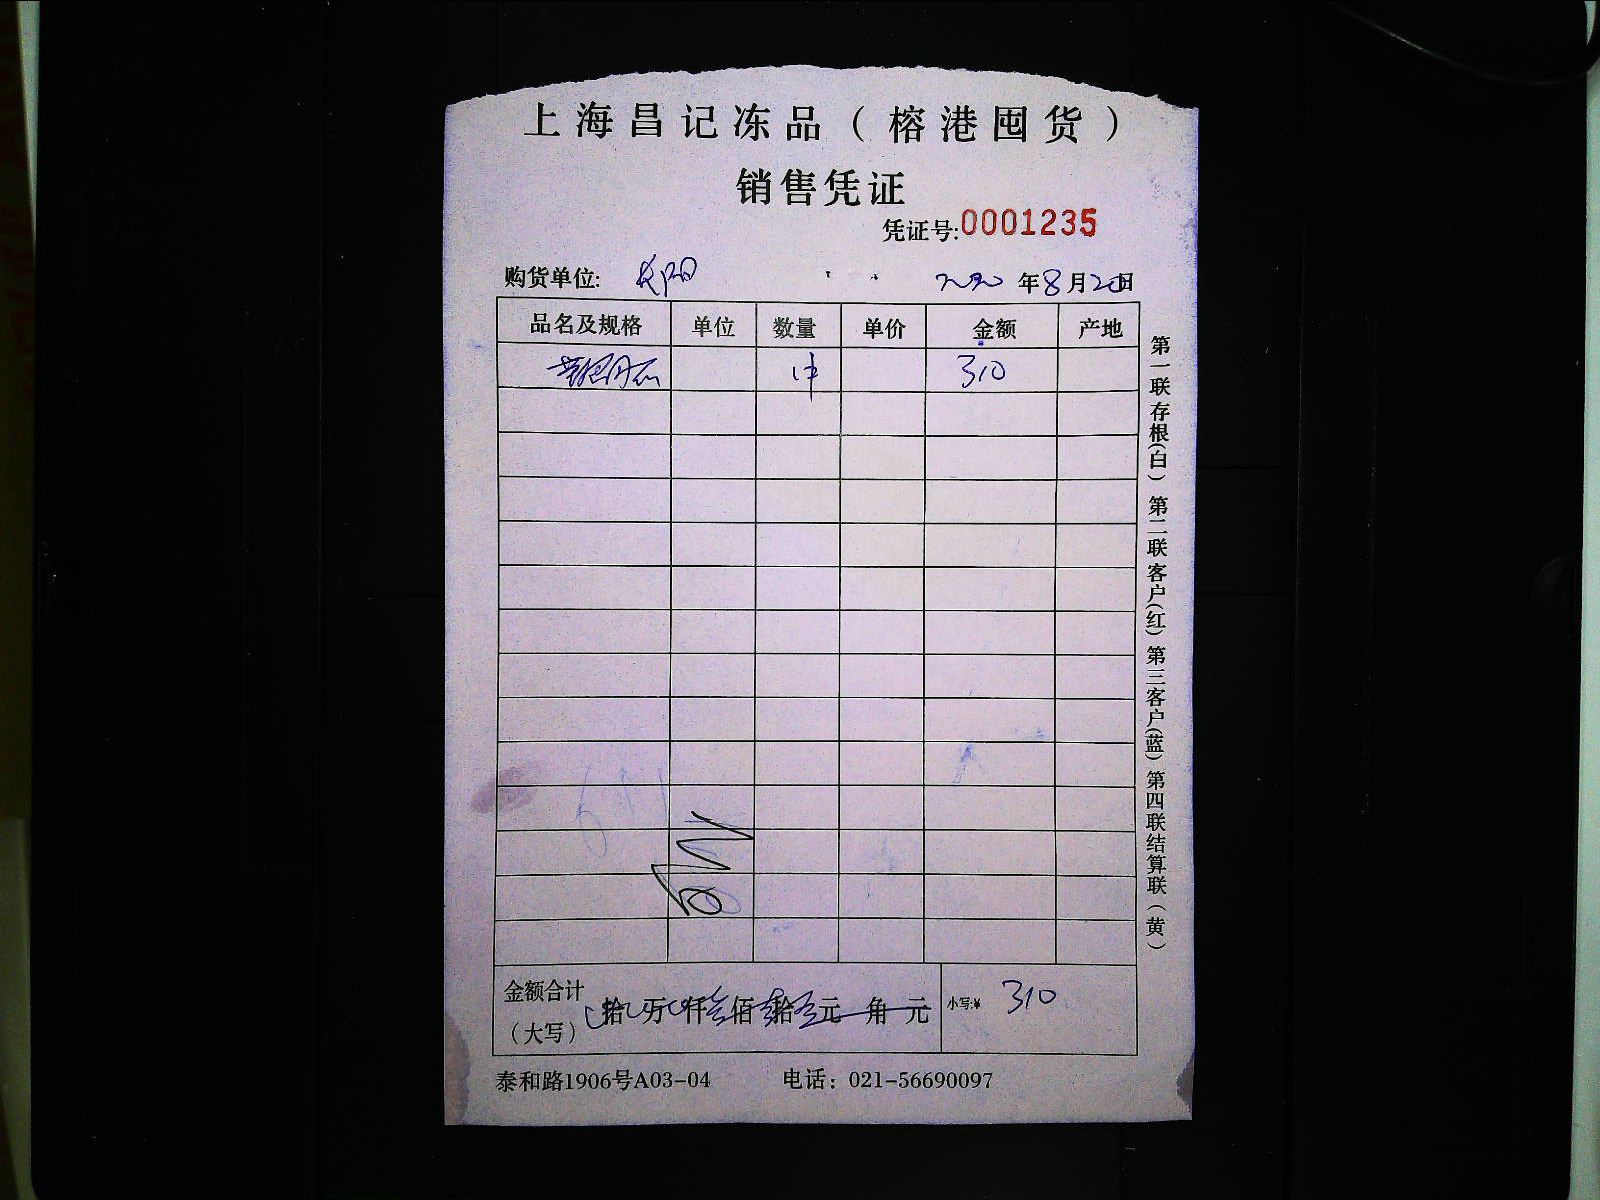 上海昌记冻品（榕港囤货）
销售凭证
凭证号:0001235
购货单位:
年8月20日
品名及规格 单位 数量 单价 金额 产地
310
金额合计
（大写）
拾 万 仟 佰 拾 元 角 元 小写:¥ 310
泰和路1906号A03-04 电话：021-56690097
第一联存根(白) 第二联客户(红) 第三客户(蓝) 第四联结算联（黄）